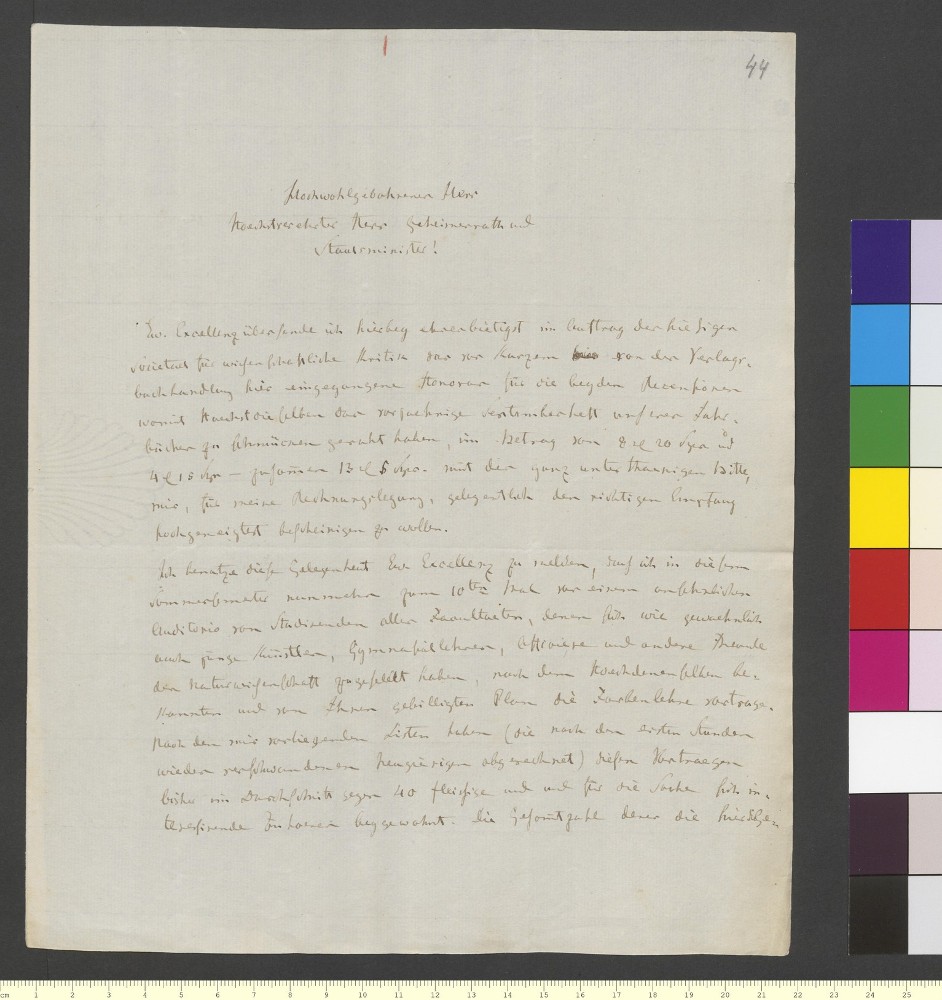 44
Hochwohlgebohrener Herr
Hoechstverehrter Herr Geheimerrath und
Staatsminister!
Ew. Excellenz übersende ich hiebey ehrerbietigst im Auftrag der hiesigen
Societaet für wissenschaftliche Kritik das vor Kurzem von der Verlags-
buchhandlung hier eingegangene Honorar für die beyden Recensionen
womit Hoechstdieselben das vorjaehrige Februarheft unserer Jahr-
bücher zu schmücken geruht haben, im Betrag von 8 20 Sgr und
4 15 Sgr — zusamen 13 5 Sgr. mit der ganz unterthaenigen Bitte,
mir, für meine Rechnungslegung, gelegentlich den richtigen Empfang
hochgeneigtest bescheinigen zu wollen.
Ich benutze diese Gelegenheit Ew. Excellenz zu melden, dass ich in diesem
Sommersemester nunmehr zum 10ten Mal vor einem ansehnlichen
Auditorio von Studirenden aller Facultaeten, denen sich wie gewoehnlich
auch junge Künstler, Gymnasiallehrer, Officiere und andere Freunde
der Naturwissenschaft zugesellt haben, nach dem Hoechdenenselben be-
kannten und von Ihnen gebilligten Plan die Farbenlehre vortrage.
Nach den mir vorliegenden Listen haben (die nach den ersten Stunden
wieder verschwundenen Neugierigen abgerechnet) diesen Vortraegen
bisher im Durchschnitt gegen 40 fleissige und und für die Sache sich in-
teressirende Zuhoerer beygewohnt. Die Gesamtzahl derer die hieselbst